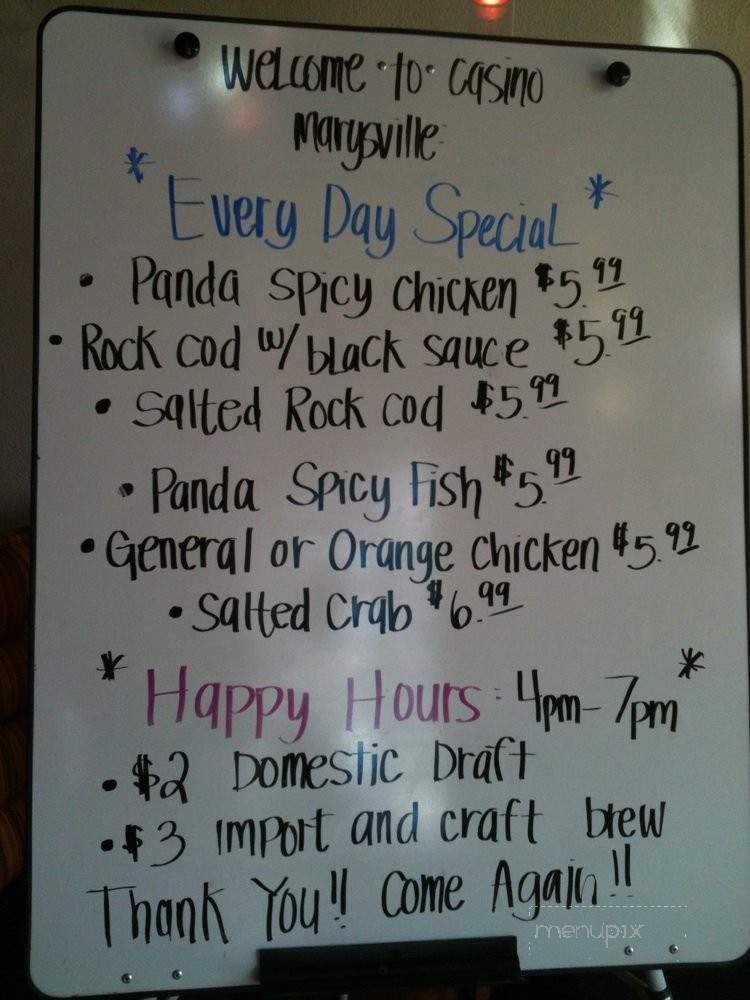 Welcome to Casino
Marysville
* Every Day Special *
• Panda Spicy Chicken $5.99
• Rock cod w/ black sauce $5.99
• Salted Rock cod $5.99
• Panda Spicy Fish $5.99
• General or Orange chicken $5.99
• Salted Crab $6.99
* Happy Hours: 4pm-7pm *
• $2 Domestic Draft
• $3 import and craft brew
Thank You!! Come Again!!
menupix